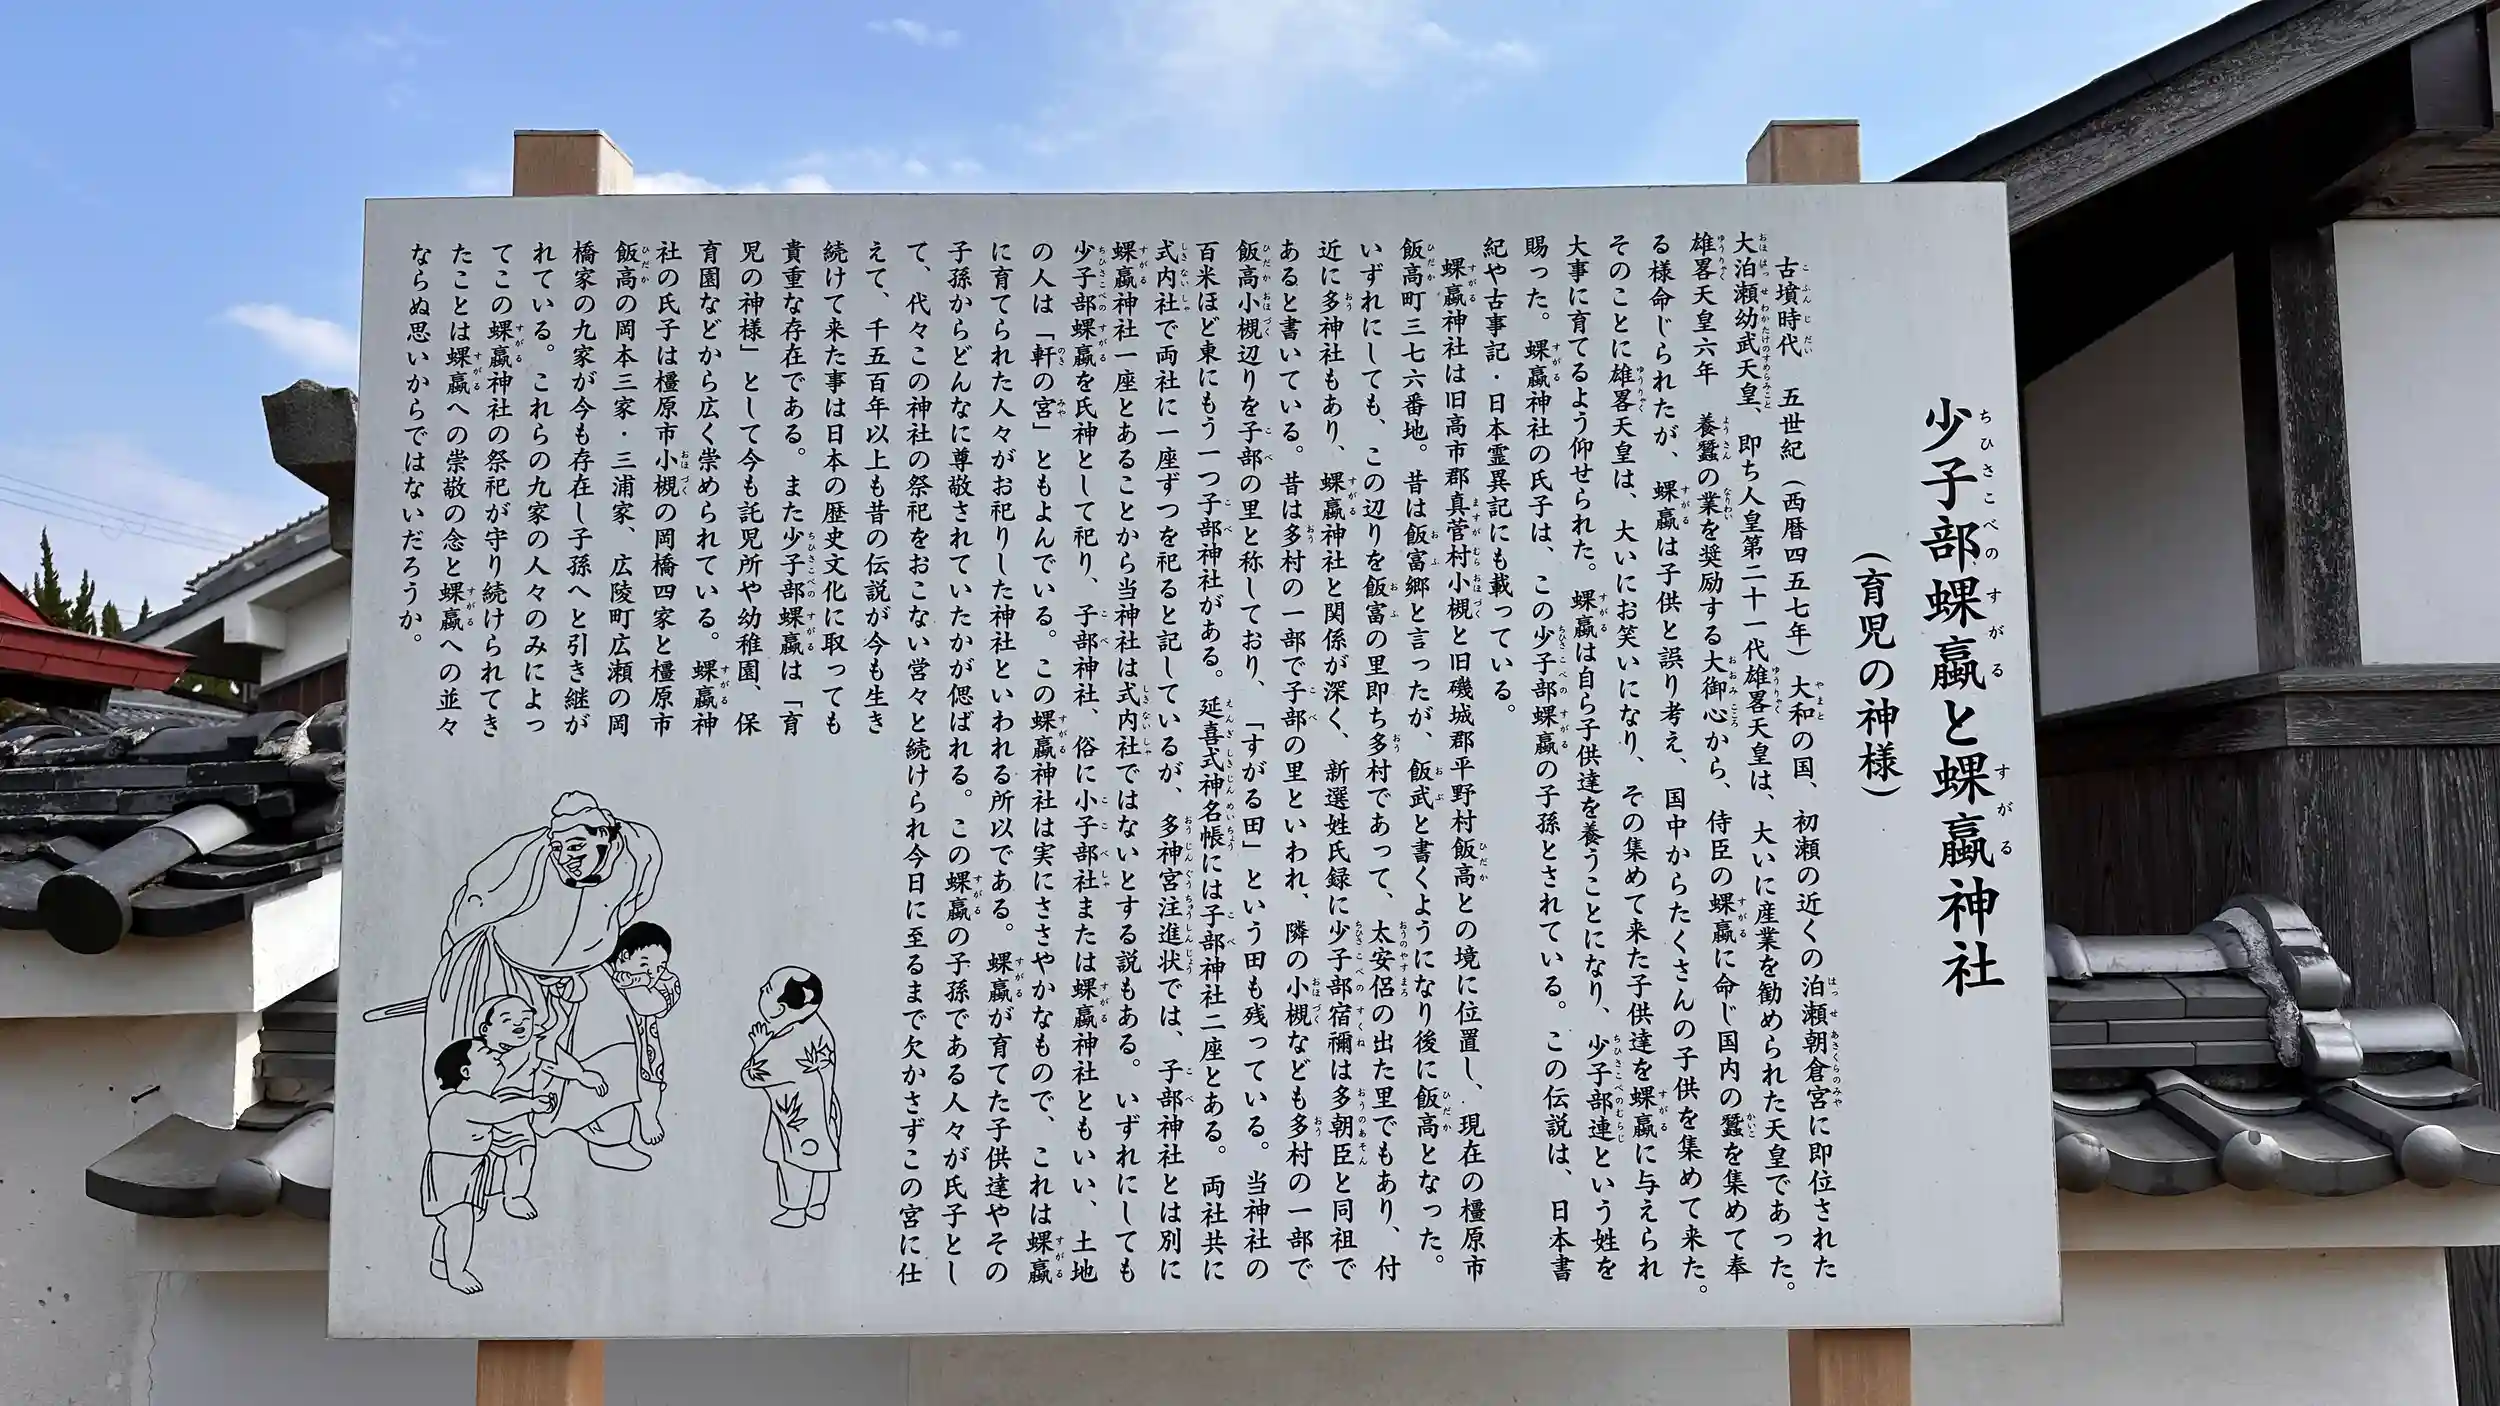 少子部蜾蠃と蜾蠃神社
(育児の神様)
古墳時代 五世紀(西暦四五七年)大和の国、初瀬の近くの泊瀬朝倉宮に即位された
大泊瀬幼武天皇、即ち人皇第二十一代雄畧天皇は、大いに産業を勧められた天皇であった。
雄畧天皇六年 養蠶の業を奨励する大御心から、侍臣の蜾蠃に命じ国内の蠶を集めて奉
る様命じられたが、蜾蠃は子供と誤り考え、国中からたくさんの子供を集めて来た。
そのことに雄畧天皇は、大いにお笑いになり、その集めて来た子供達を蜾蠃に与えられ
大事に育てるよう仰せられた。蜾蠃は自ら子供達を養うことになり、少子部連という姓を
賜った。蜾蠃神社の氏子は、この少子部蜾蠃の子孫とされている。この伝説は、日本書
紀や古事記・日本霊異記にも載っている。
蜾蠃神社は旧高市郡真菅村小槻と旧磯城郡平野村飯高との境に位置し、現在の橿原市
飯高町三七六番地。昔は飯富郷と言ったが、飯武と書くようになり後に飯高となった。
いずれにしても、この辺りを飯富の里即ち多村であって、太安侶の出た里でもあり、付
近に多神社もあり、蜾蠃神社と関係が深く、新選姓氏録に少子部宿禰は多朝臣と同祖で
あると書いている。昔は多村の一部で子部の里といわれ、隣の小槻なども多村の一部で
飯高小槻辺りを子部の里と称しており、「すがる田」という田も残っている。当神社の
百米ほど東にもう一つ子部神社がある。延喜式神名帳には子部神社二座とある。両社共に
式内社で両社に一座ずつを祀ると記しているが、多神宮注進状では、子部神社とは別に
蜾蠃神社一座とあることから当神社は式内社ではないとする説もある。いずれにしても
少子部蜾蠃を氏神として祀り、子部神社、俗に小子部社または蜾蠃神社ともいい、土地
の人は「軒の宮」ともよんでいる。この蜾蠃神社は実にささやかなもので、これは蜾蠃
に育てられた人々がお祀りした神社といわれる所以である。蜾蠃が育てた子供達やその
子孫からどんなに尊敬されていたかが偲ばれる。この蜾蠃の子孫である人々が氏子とし
て、代々この神社の祭祀をおこない営々と続けられ今日に至るまで欠かさずこの宮に仕
えて、千五百年以上も昔の伝説が今も生き
続けて来た事は日本の歴史文化に取っても
貴重な存在である。また少子部蜾蠃は「育
児の神様」として今も託児所や幼稚園、保
育園などから広く崇められている。蜾蠃神
社の氏子は橿原市小槻の岡橋四家と橿原市
飯高の岡本三家・三浦家、広陵町広瀬の岡
橋家の九家が今も存在し子孫へと引き継が
れている。これらの九家の人々のみによっ
てこの蜾蠃神社の祭祀が守り続けられてき
たことは蜾蠃への崇敬の念と蜾蠃への並々
ならぬ思いからではないだろうか。